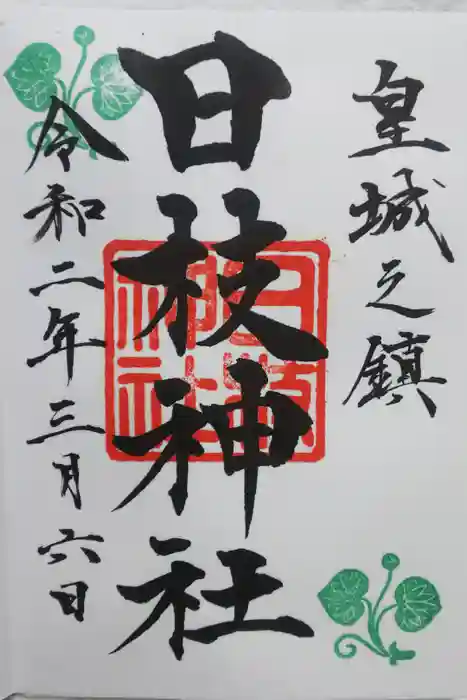 皇城之鎮
日枝神社
令和二年三月六日
日枝神社